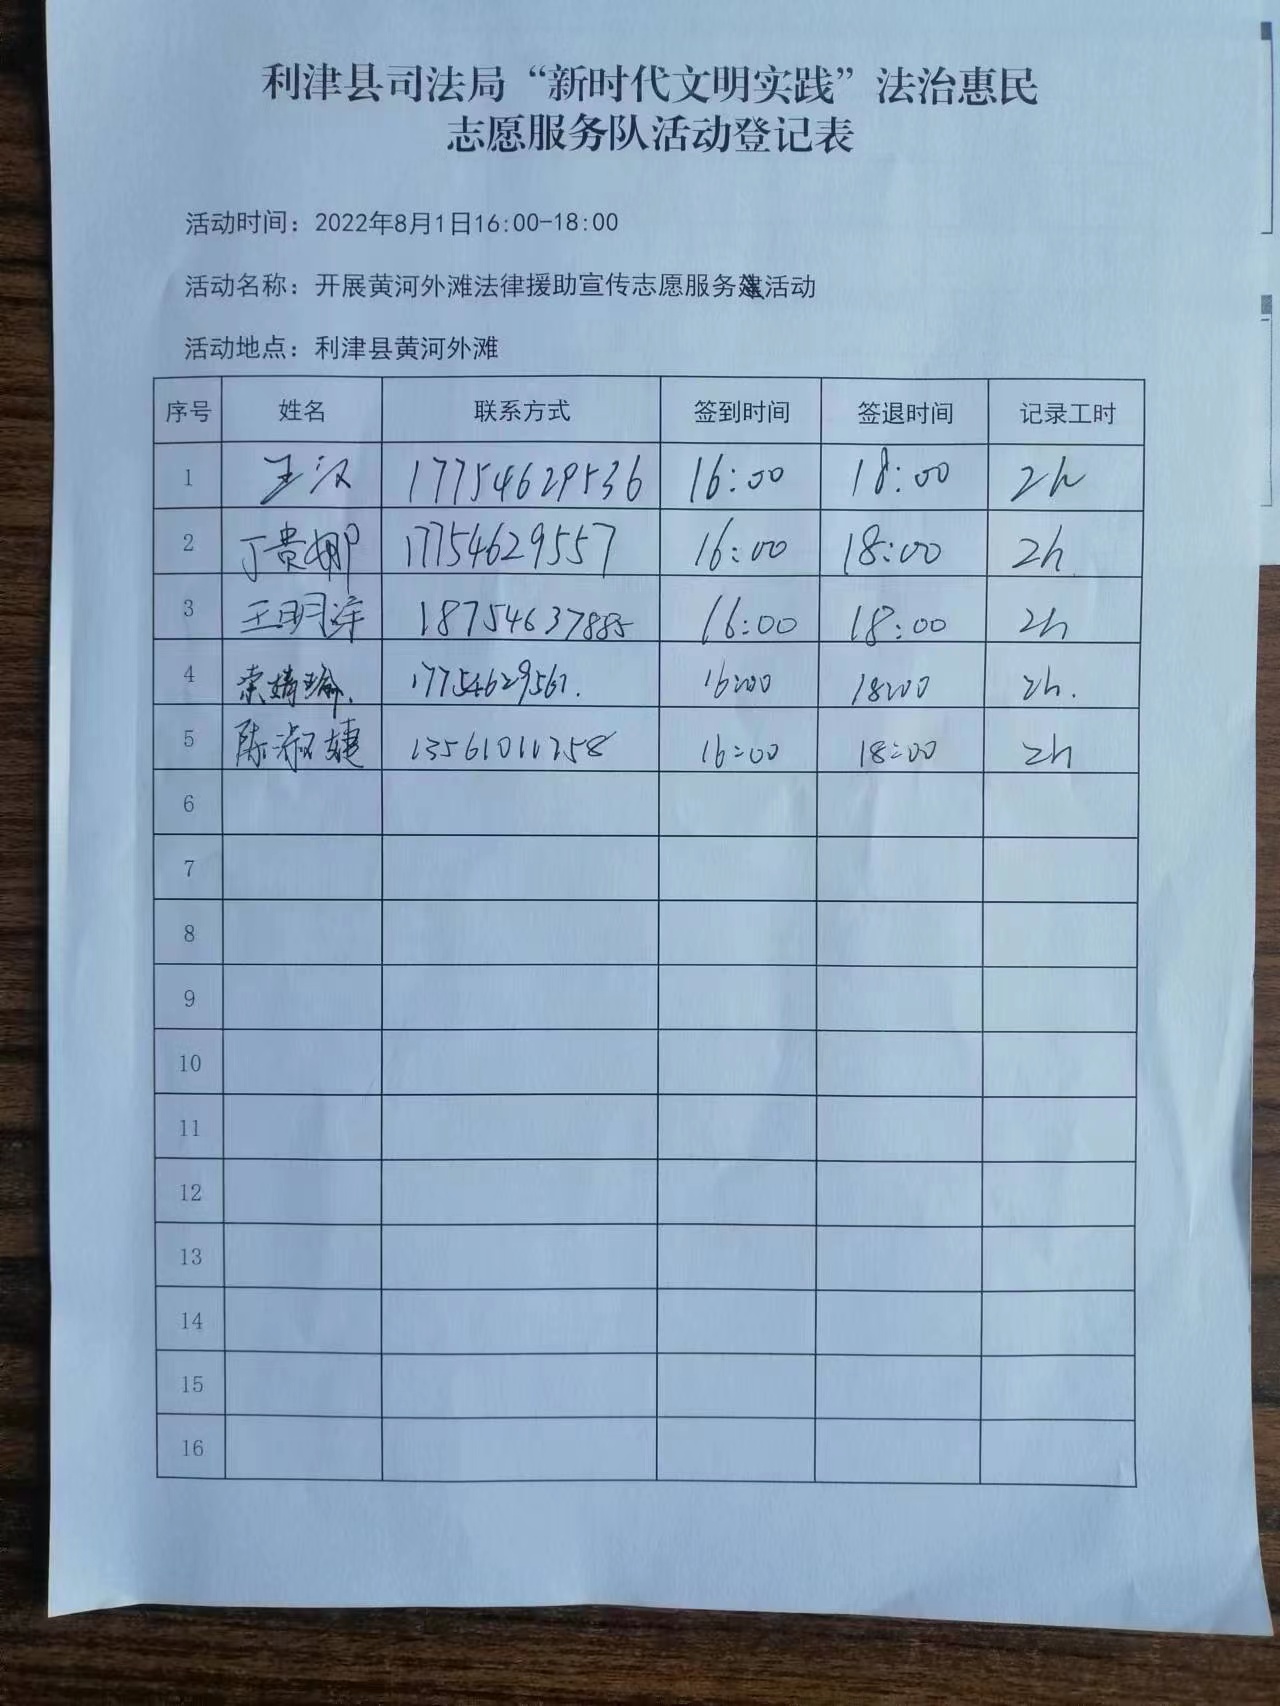 利津县司法局“新时代文明实践”法治惠民
志愿服务队活动登记表
活动时间：2022年8月1日16:00-18:00
活动名称：开展黄河外滩法律援助宣传志愿服务活动
活动地点：利津县黄河外滩
序号 姓名 联系方式 签到时间 签退时间 记录工时
1 王汉 17754629536 16:00 18:00 2h
2 丁贵娜 17754629557 16:00 18:00 2h
3 王明洋 18754637885 16:00 18:00 2h
4 17754629561. 16:00 18:00 2h.
5 陈淑婕 13561011758 16:00 18:00 2h
6
7
8
9
10
11
12
13
14
15
16